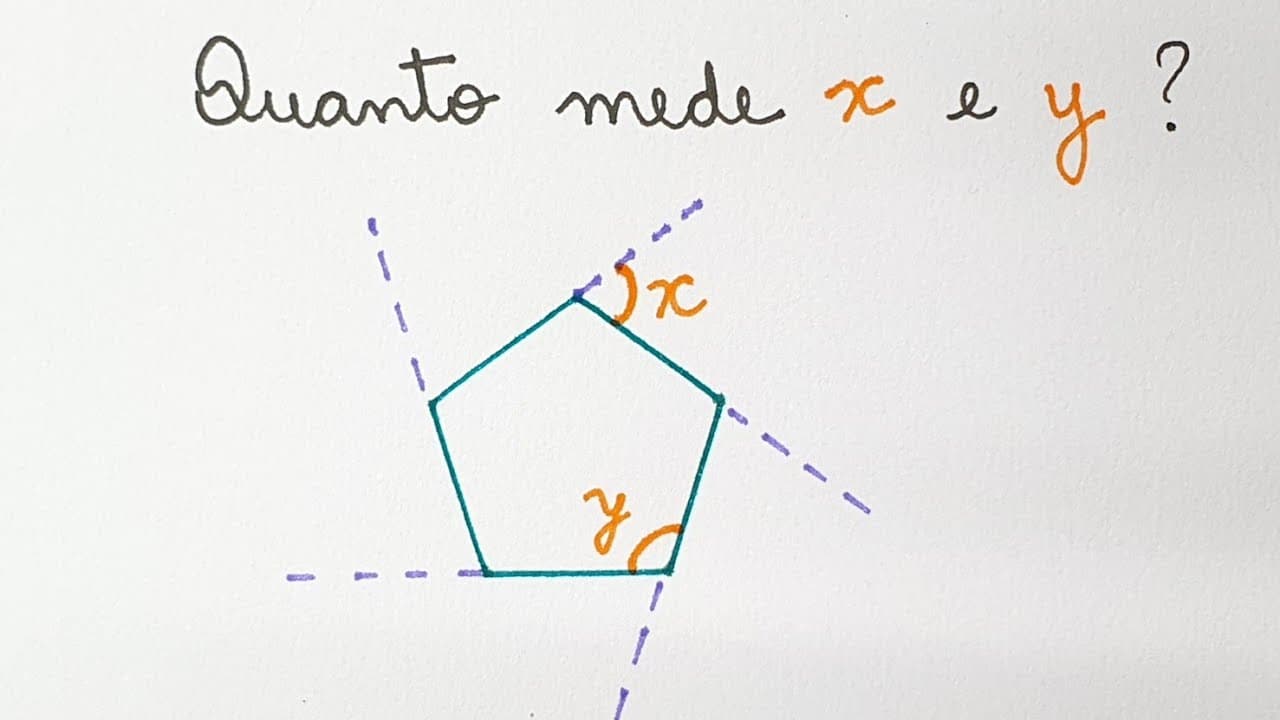 Quanto mede x e y ?
x
y